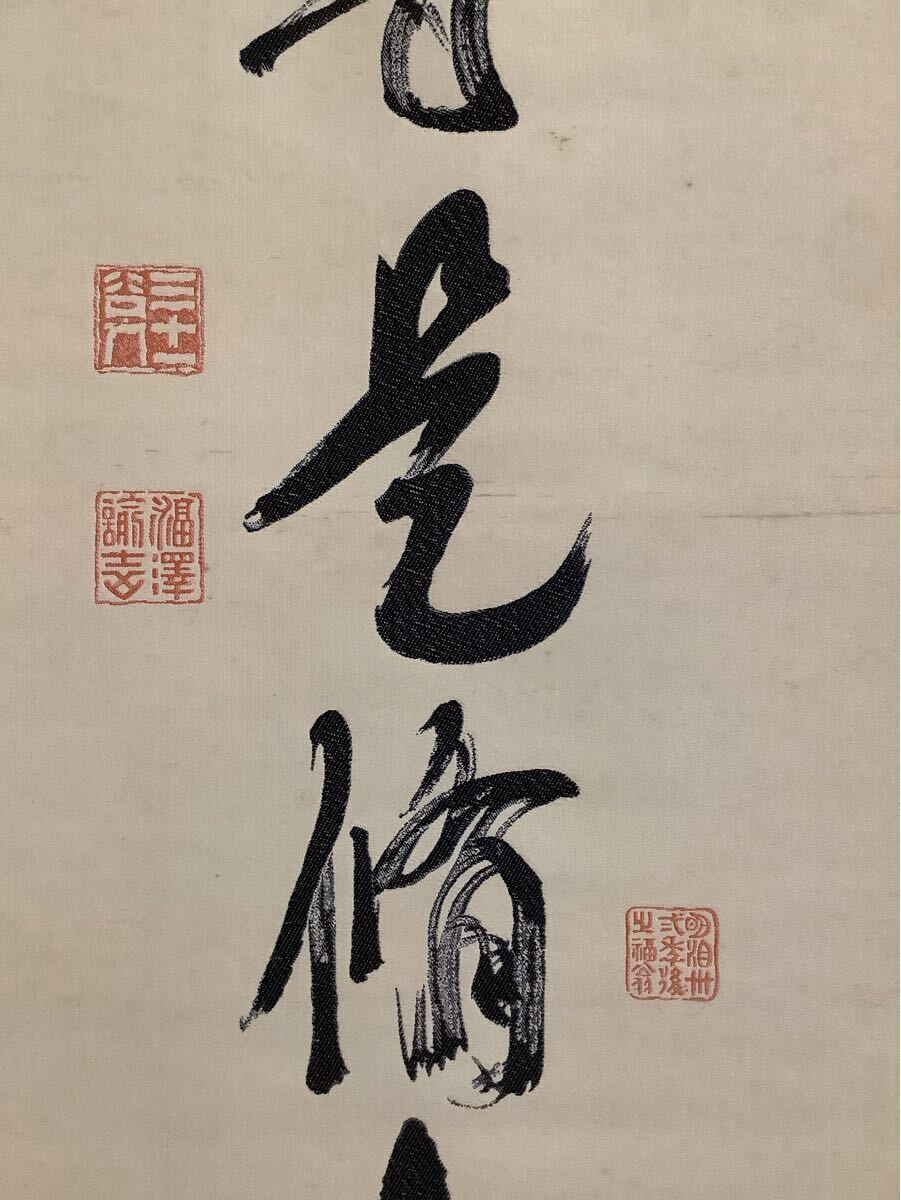 是
脩
明治卅
弐季後
之福翁
三十一
谷人
福澤
諭吉